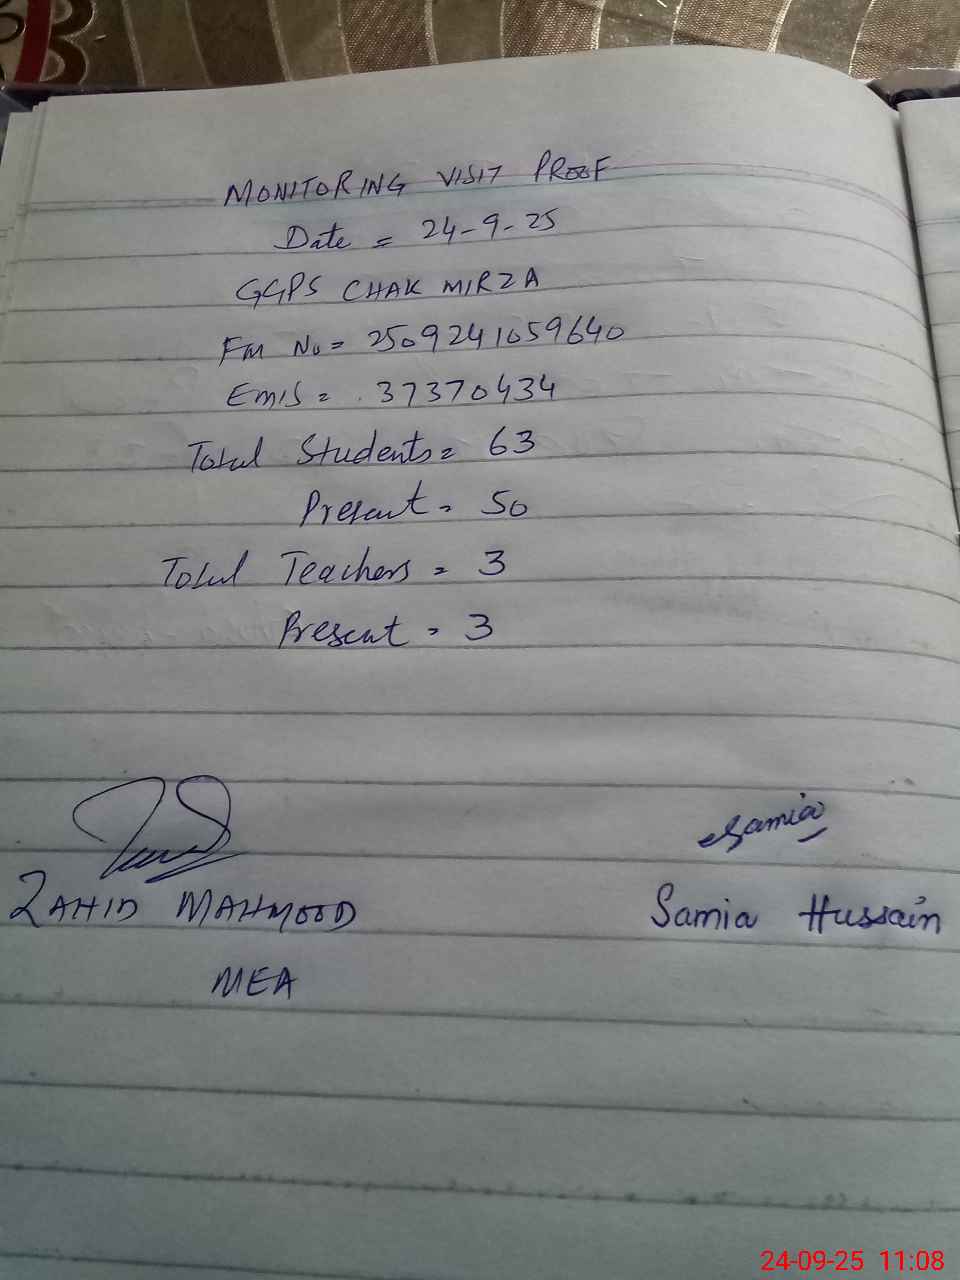 MONITORING VISIT PROOF
Date = 24-9-25
GGPS CHAK MIRZA
Fm No = 2509241059640
Emis = 37370434
Total Students = 63
Present = 50
Total Teachers = 3
Present = 3
Samia
ZAHID MAHMOOD
Samia Hussain
MEA
24-09-25 11:08